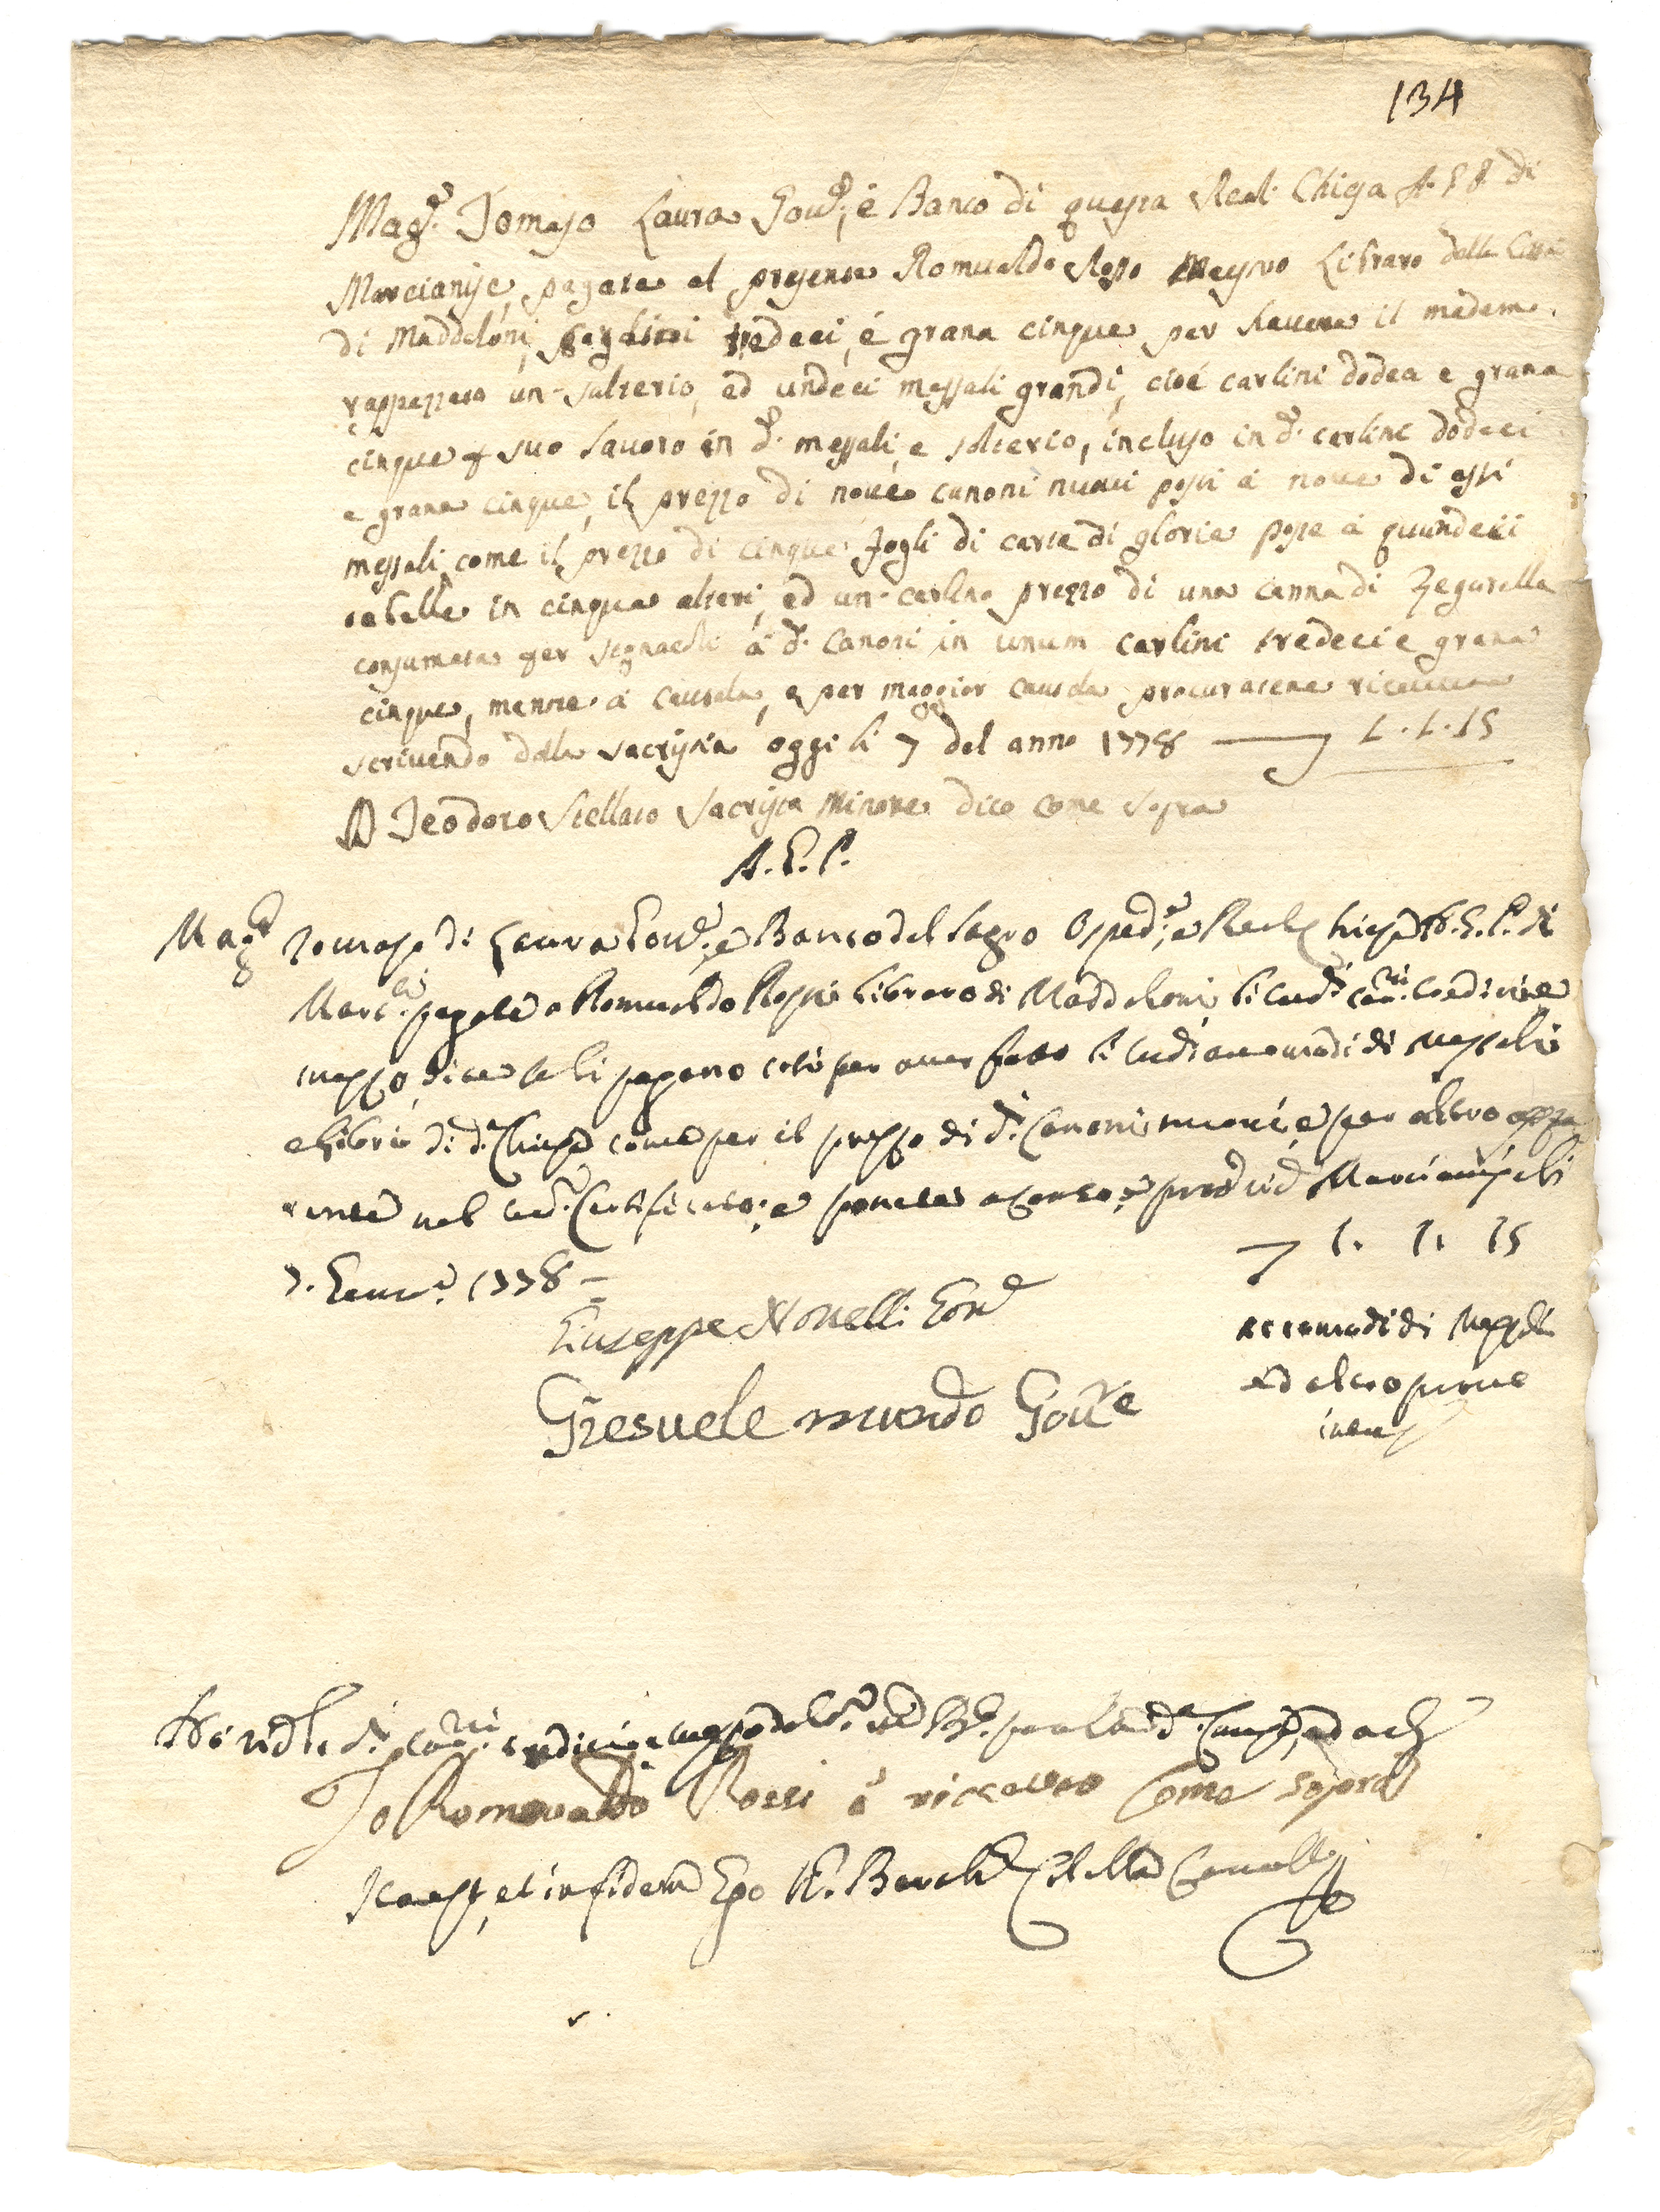 134
Mag.co Tomaso Laura Gov.re, e Banco di questa Real Chiesa A. G. P. di
Marcianise, pagate al presente Romualdo Rosso Mastro Libraro della Città
di Maddaloni, carlini tredeci, e grana cinque per havere il medemo
rappezzato un Salterio, ed undeci messali grandi, cioè carlini dodeci e grana
cinque per suo lavoro in d.i messali, e salterio, incluso in d.i carlini dodeci
e grana cinque, il prezzo di nove canoni nuovi posti a nove di essi
messali, come il prezzo di cinque fogli di carta di gloria poste a quindeci
tabelle in cinque altari, ed un carlino prezzo di una canna di zegarella
consumata per segnacoli a d.i Canoni in unum carlini tredeci e grana
cinque, mentre a cautela, e per maggior cautela procuratene ricevuta
scrivendo dalla sacristia oggi li 7 del anno 1778 1.1.15
D Teodoro Stellato Sacrista Minore dico come sopra
A. G. P.
Mag.co Tomaso di Laura Gov.re e Banco del Sagro Osped.e, e Real Chiesa A. G. P. di
Marc.se pagate a Romualdo Rossi Libraro di Maddaloni li sud.i car.ni tredici e
mezzo, dite se li pagano così per aver fatto li sud.i accomodi di messali
e libri di d.a Chiesa come per il prezzo di d.i Canoni nuovi, e per altro appa
rente nel sud.o Certificato; e ponete a conto, e Marcianise li
7. Genn.o 1778 = 1. 1. 15
Giuseppe Novelli Gov.re accomodi di Messali
Giesuele mundo Gov.re ed altro come
intus
Ho ric.to li d.i car.ni tredici e mezzo dal sud.o per la causa ad
Io Romoualdo Rossi ò riceuuto Come sopra
Ita est, et in fidem Ego